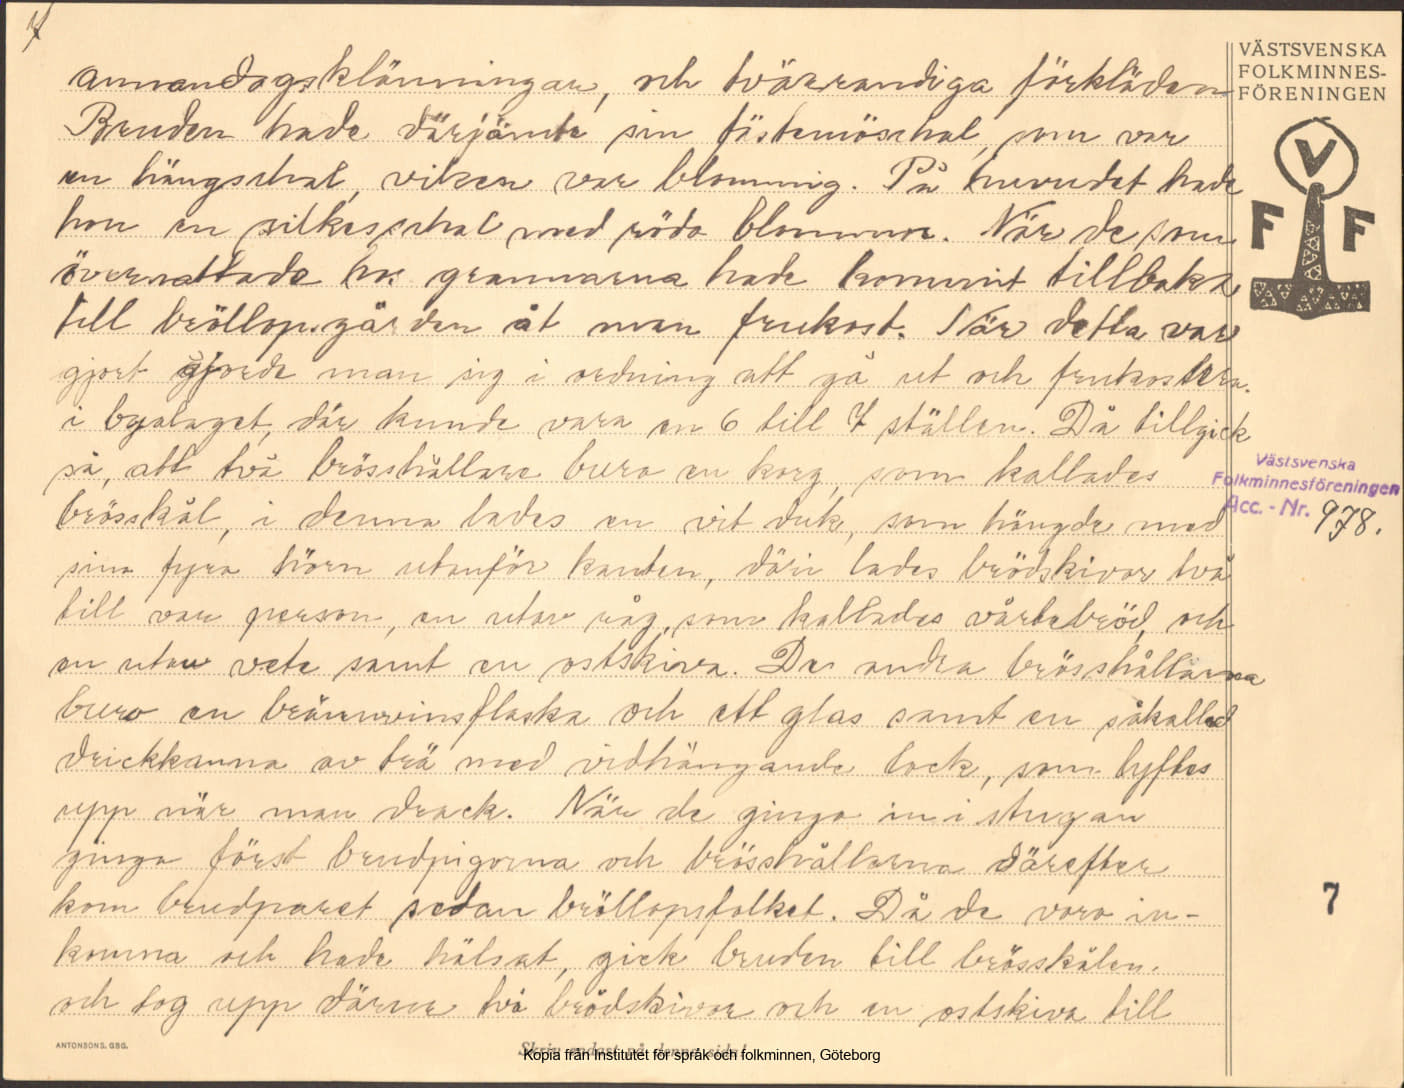 7
VÄSTSVENSKA
FOLKMINNES-
FÖRENINGEN
V
F F
annandagsklänningar, och tvärrandiga förkläden
Bruden hade därjämte sin fästemöschal, som var
en hängschal, vilken var blommig. På huvudet hade
hon en silkesschal med röda blommor. När de som
övernattade hos grannarna hade kommit tillbaka
till bröllopsgården åt man frukost. När detta var
gjort gjorde man sig i ordning att gå ut och frukostera.
i byalaget, där kunde vara en 6 till 7 ställen. Då tillgick
så, att två brösshållare buro en korg, som kallades
brösskål, i denna lades en vit duk, som hängde med
sina fyra hörn utanför kanten, däri lades brödskivor två
till var person, en utav råg, som kallades vårtebröd, och
en utav vete samt en ostskiva. De andra brösshållarna
buro en brännvinsflaska och ett glas samt en såkallad
drickkanna av trä med vidhängande lock, som lyftes
upp när man drack. När de gingo in i stugan
gingo först brudpigorna och brösshållarna därefter
kom brudparet sedan bröllopsfolket. Då de voro in-
komna och hade hälsat, gick bruden till brösskålen.
och tog upp därur två brödskivor och en ostskiva till
Västsvenska
Folkminnesföreningen
Acc. - Nr. 978.
7
ANTONSONS, GBG.
Skriv endast på denna sida!
Kopia från Institutet för språk och folkminnen, Göteborg